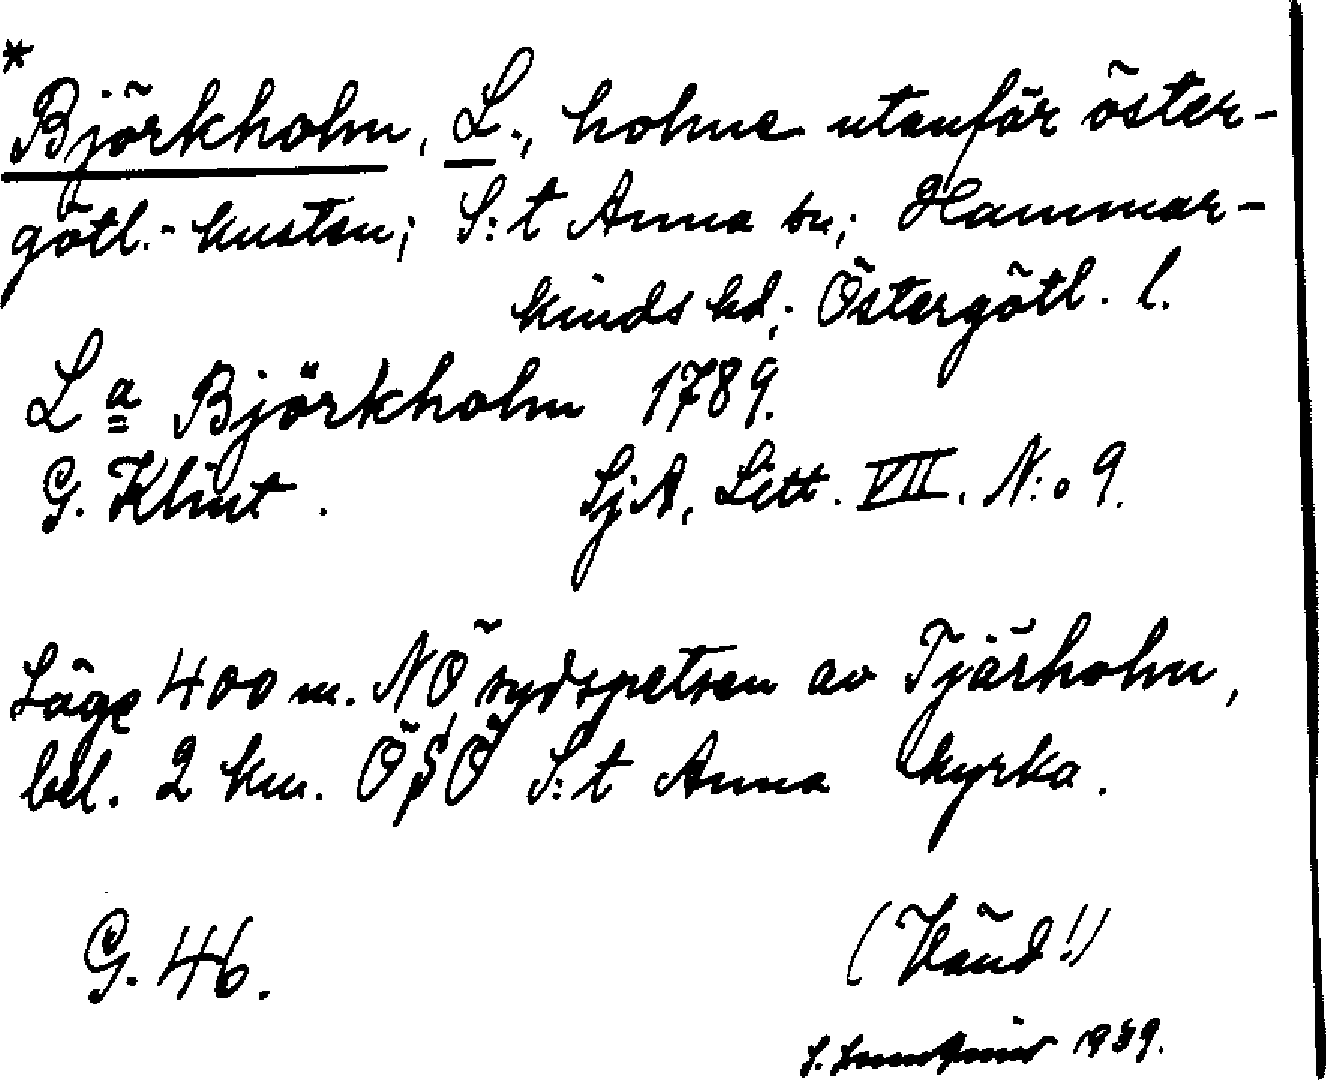 *
Björkholm, L., holme utanför öster-
götl.-kusten; S:t Anna sn; Hammar-
kinds hd; Östergötl. l.
L a Björkholm 1789.
G. Klint. SjA, Litt. VII. N:o 9.
Läge 400 m. NÖ sydspetsen av Tjärholm,
bel. 2 km. ÖSÖ S:t Anna kyrka.
G. 46. (Vänd!)
S. 1939.